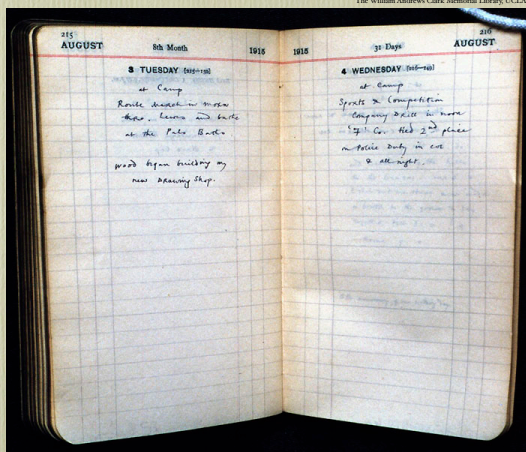 The William Andrews Clark Memorial Library, UCLA
215
AUGUST 8th Month 1915
3 TUESDAY [215—150]
at Camp
Route March in morn
and bathe
at the Baths
Wood began building my
new Drawing Shop.
216
1915 31 Days AUGUST
4 WEDNESDAY [216—149]
at Camp
Sports & Competition
Company Drill in morn
'F' Co. tied 2nd place
on Police Duty in eve
& all night.